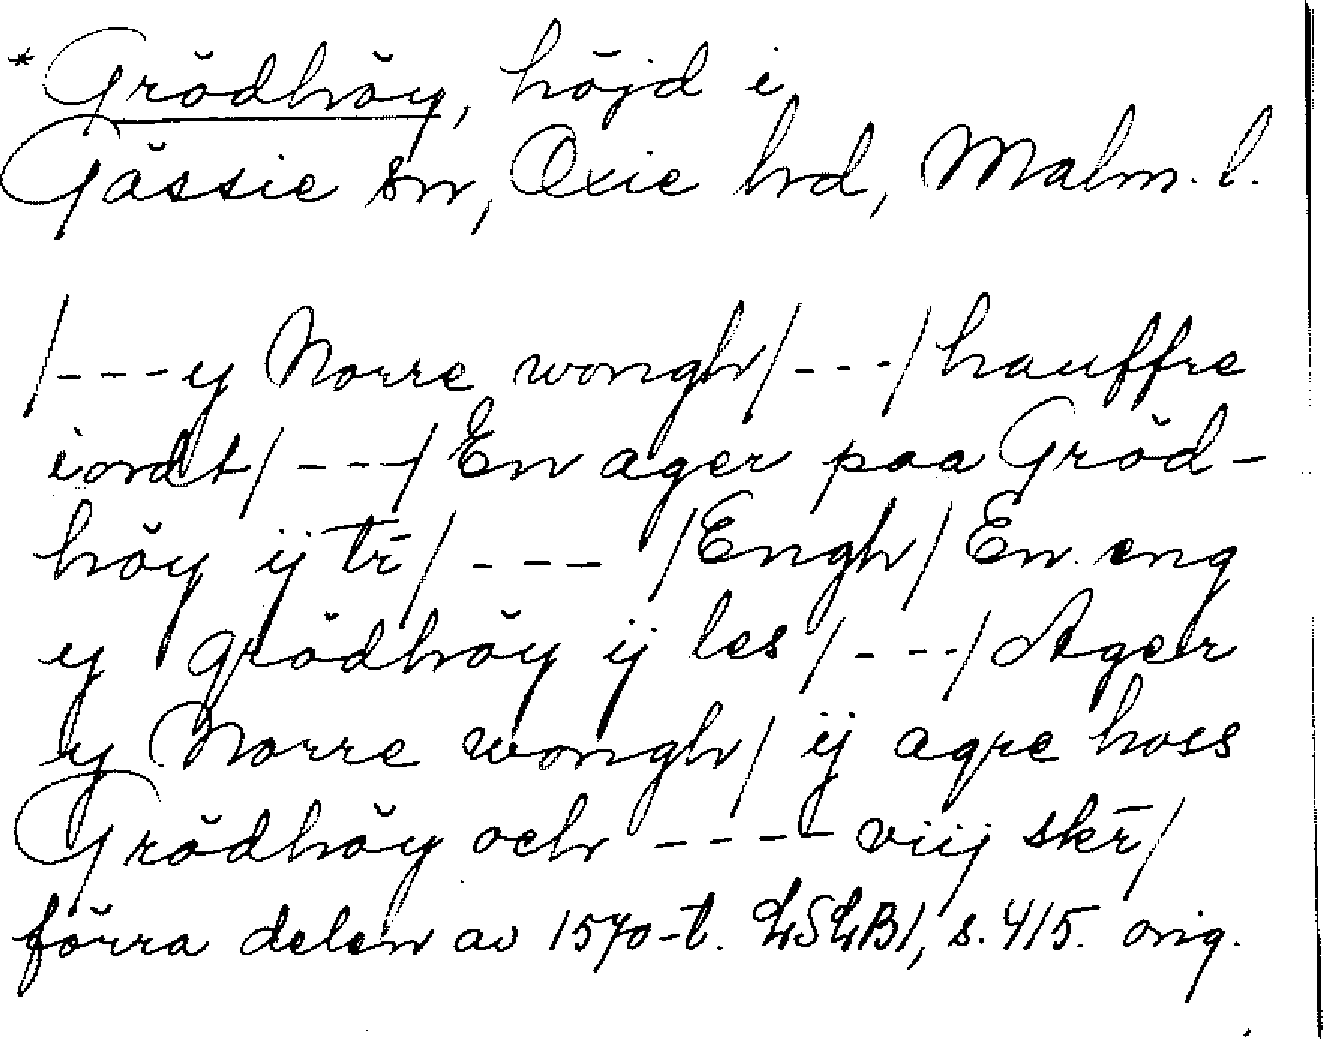 *Grödhöy, höjd i
Gässie sn, Oxie hd, Malm. l.
/---y Norre wongh/---/hauffre
iordt/---/En ager paa Gröd-
höy ij tr̄/--- /Engh/En eng
y grödhöy ij les/---/Ager
y Norre wongh/ ij agre hoss
Grödhöy och ---- viij skr̄/
förra delen av 1570-t. LSLB1, s. 415. orig.